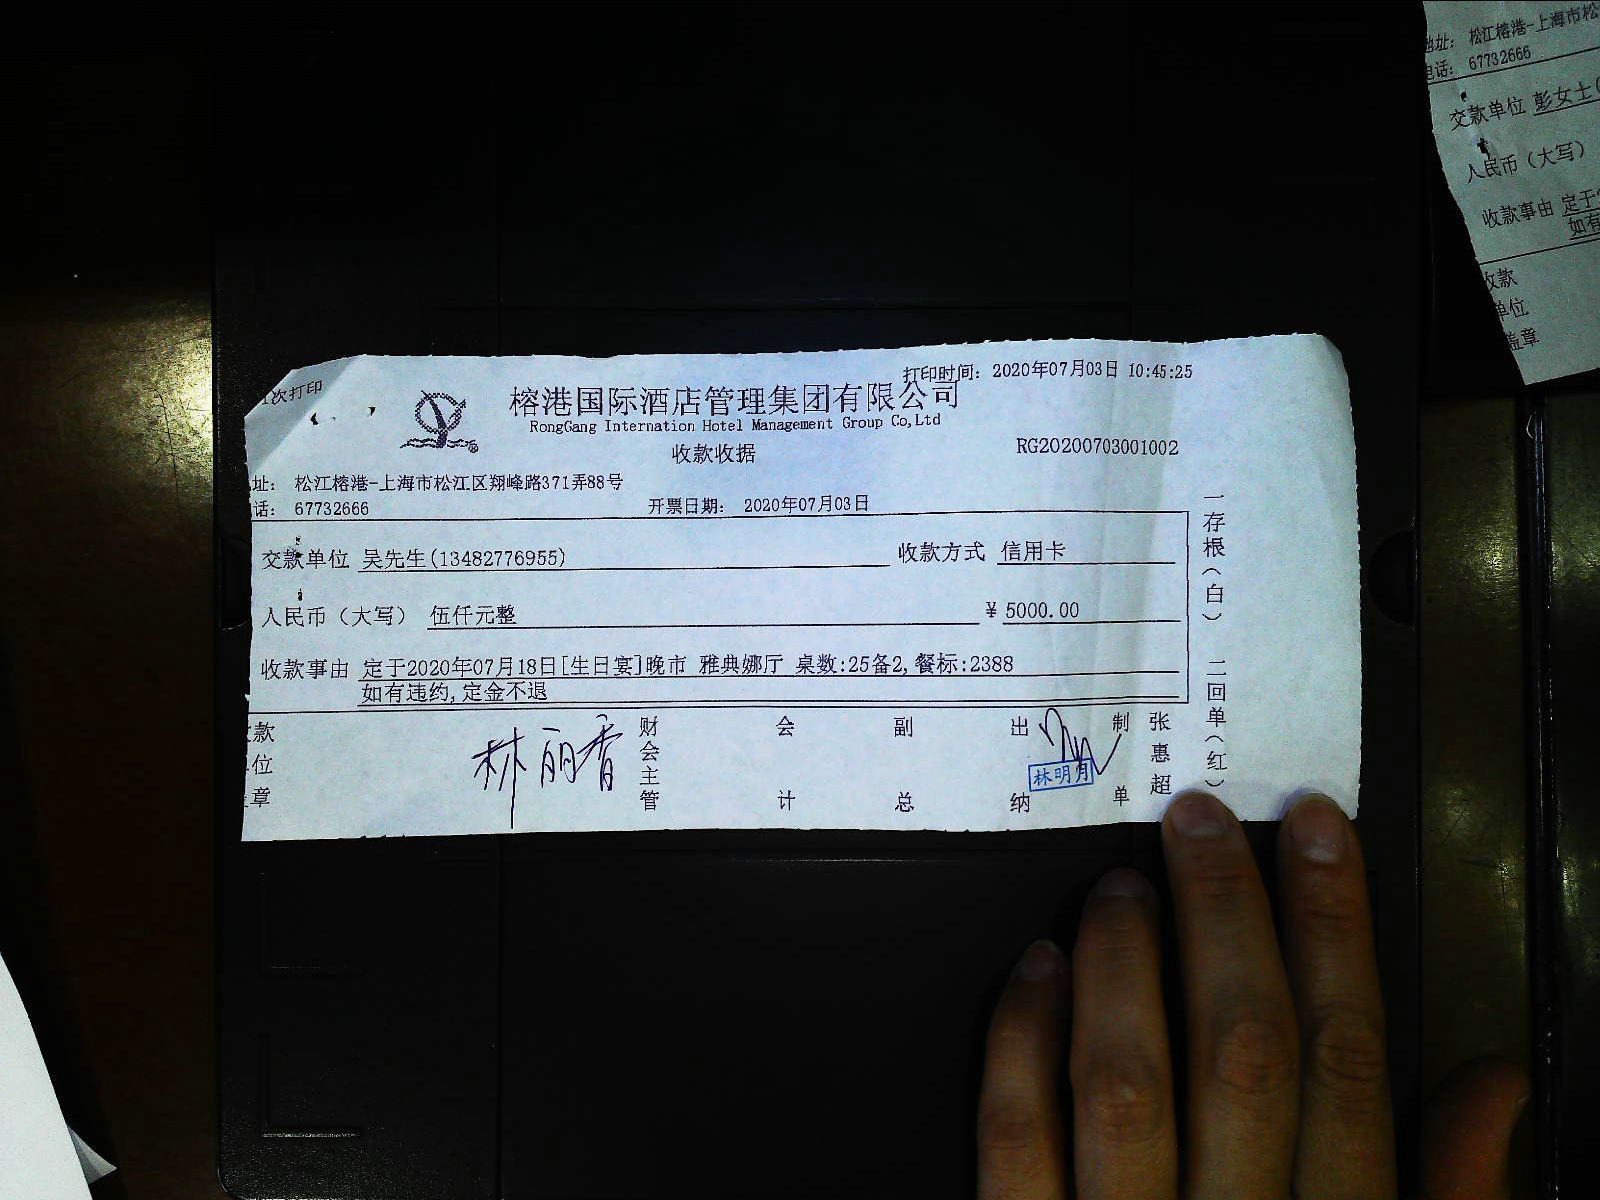 次打印
打印时间: 2020年07月03日 10:45:25
榕港国际酒店管理集团有限公司
RongGang Internation Hotel Management Group Co,Ltd
收款收据
RG20200703001002
址: 松江榕港-上海市松江区翔峰路371弄88号
话: 67732666
开票日期: 2020年07月03日
交款单位 吴先生(13482776955)
收款方式 信用卡
人民币（大写） 伍仟元整
¥ 5000.00
收款事由 定于2020年07月18日[生日宴]晚市 雅典娜厅 桌数:25备2,餐标:2388
如有违约,定金不退
款
位
章
林丽香
财会主管
会计
副总
出纳
林明月
制单
张惠超
一存根(白) 二回单(红)
地址: 松江榕港-上海市松
电话: 67732666
交款单位 彭女士(
人民币（大写）
收款事由 定于
如有
收款
单位
盖章